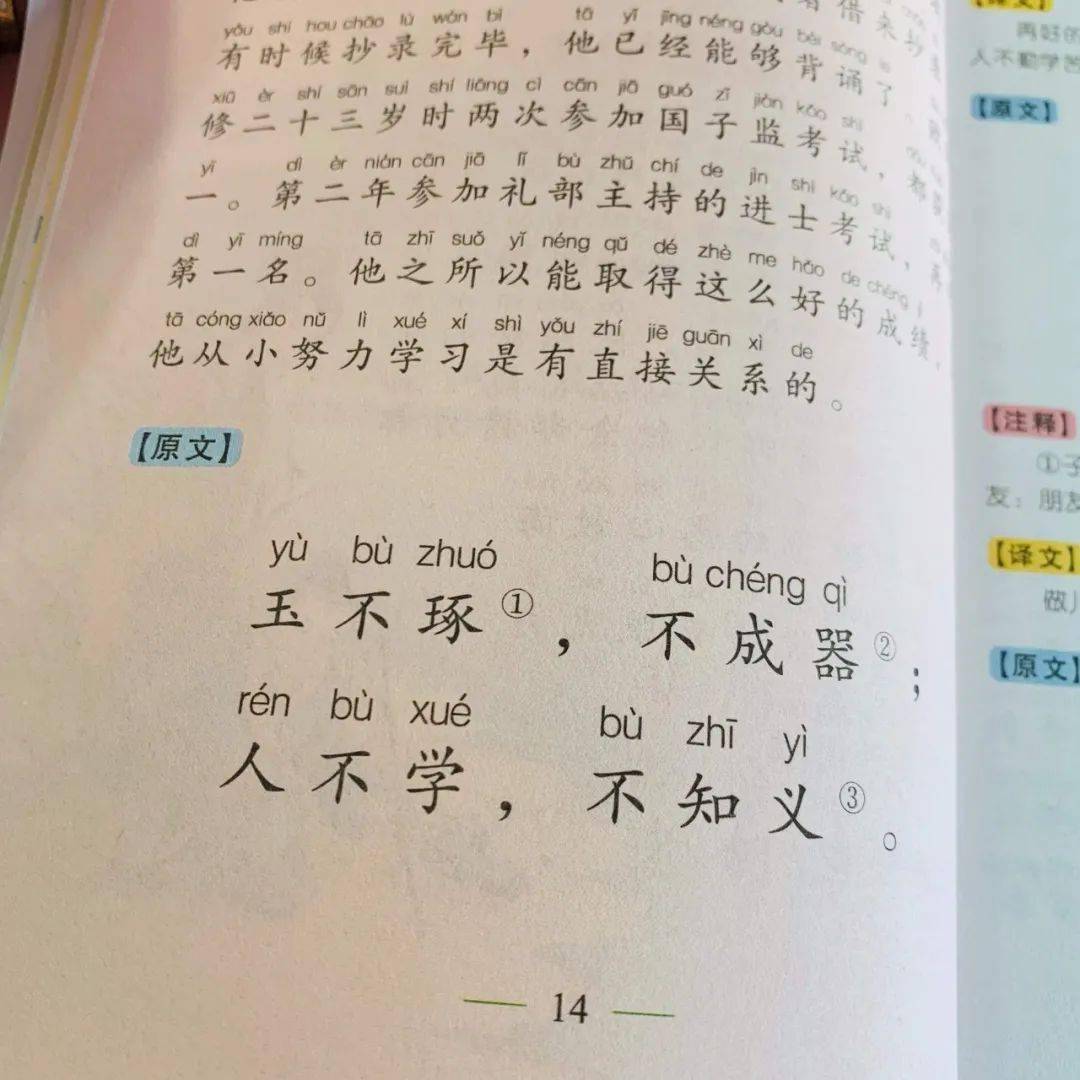 借来抄
yǒu shí hou chāo lù wán bì tā yǐ jīng néng gòu bèi sòng le
有时候抄录完毕，他已经能够背诵了
xiū èr shí sān suì shí liǎng cì cān jiā guó zǐ jiàn kǎo shì
修二十三岁时两次参加国子监考试，都
yī dì èr nián cān jiā lǐ bù zhǔ chí de jìn shì kǎo shì
一。第二年参加礼部主持的进士考试，再
dì yī míng tā zhī suǒ yǐ néng qǔ dé zhè me hǎo de chéng jì
第一名。他之所以能取得这么好的成绩，
tā cóng xiǎo nǔ lì xué xí shì yǒu zhí jiē guān xì de
他从小努力学习是有直接关系的。
【原文】
yù bù zhuó bù chéng qì
玉不琢①，不成器②；
rén bù xué bù zhī yì
人不学，不知义③。
14
【译文】
再好的
人不勤学苦
【原文】
【注释】
①子
友：朋友
【译文】
做儿
【原文】